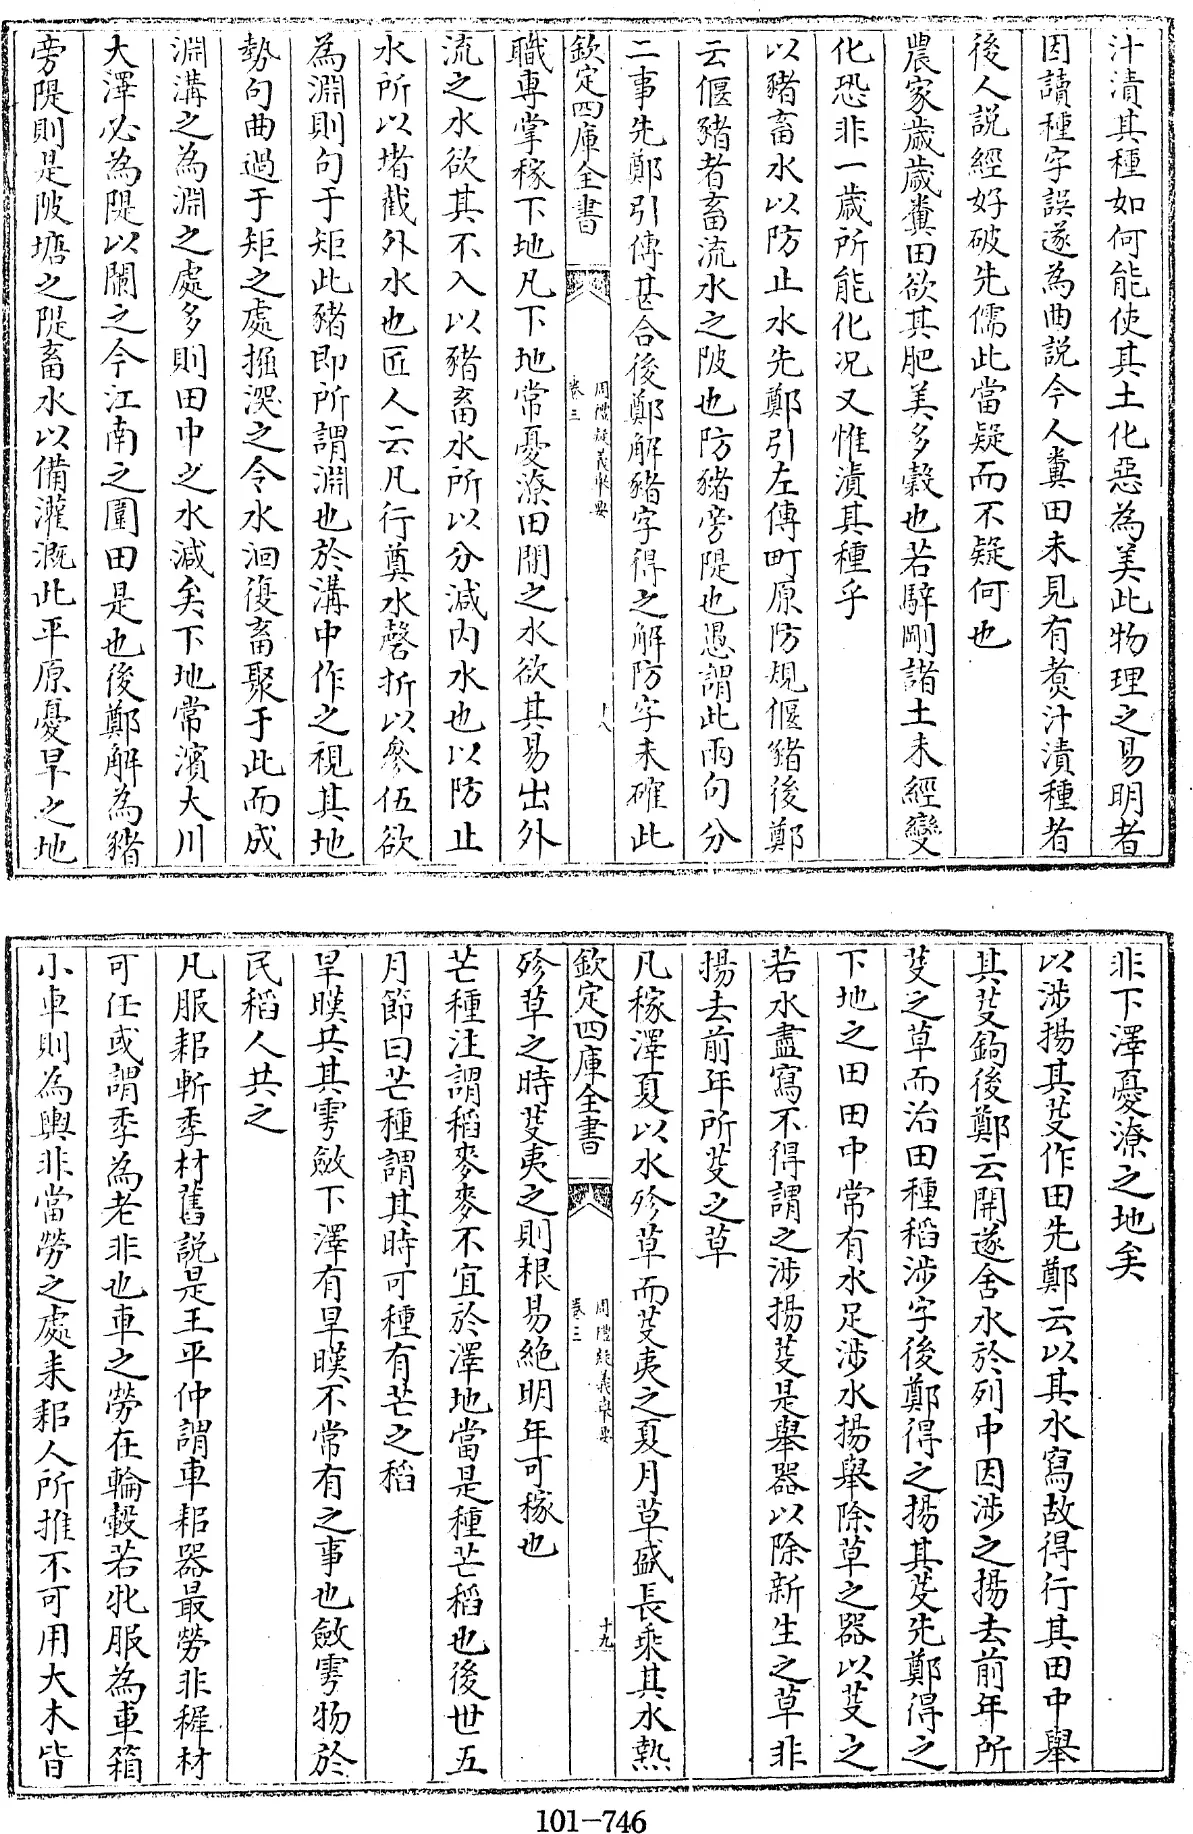 汁漬其種如何能使其土化惡為美此物理之易明者
因讀種字誤遂為曲説今人糞田未見有煑汁漬種者
後人説經好破先儒此當疑而不疑何也
農家歲歲糞田欲其肥美多穀也若騂剛諸土未經變
化恐非一歲所能化况又惟漬其種乎
以豬畜水以防止水先鄭引左傳町原防規偃豬後鄭
云偃豬者畜流水之陂也防豬旁隄也愚謂此兩句分
二事先鄭引傳甚合後鄭解豬字得之解防字未確此
欽定四庫全書
周禮疑義舉要
卷三
十八
職專掌稼下地凡下地常憂潦田間之水欲其易出外
流之水欲其不入以豬畜水所以分減内水也以防止
水所以堵截外水也匠人云凡行奠水磬折以參伍欲
為淵則句于矩此豬即所謂淵也於溝中作之視其地
勢句曲過于矩之處掘深之令水洄復畜聚于此而成
淵溝之為淵之處多則田中之水減矣下地常濱大川
大澤必為隄以闌之今江南之圍田是也後鄭解為豬
旁隄則是陂塘之隄畜水以備灌溉此平原憂旱之地
非下澤憂潦之地矣
以涉揚其芟作田先鄭云以其水寫故得行其田中舉
其芟鉤後鄭云開遂舍水於列中因涉之揚去前年所
芟之草而治田種稻涉字後鄭得之揚其芟先鄭得之
下地之田田中常有水足涉水揚舉除草之器以芟之
若水盡寫不得謂之涉揚芟是舉器以除新生之草非
揚去前年所芟之草
凡稼澤夏以水殄草而芟夷之夏月草盛長乘其水熱
欽定四庫全書
周禮疑義舉要
卷三
十九
殄草之時芟夷之則根易絶明年可稼也
芒種注謂稻麥麥不宜於澤地當是種芒稻也後世五
月節曰芒種謂其時可種有芒之稻
旱暵共其雩斂下澤有旱暵不常有之事也斂雩物於
民稻人共之
凡服耜斬季材舊説是王平仲謂車耜器最勞非穉材
可任或謂季為老非也車之勞在輪轂若牝服為車箱
小車則為輿非當勞之處耒耜人所推不可用大木皆
101-746